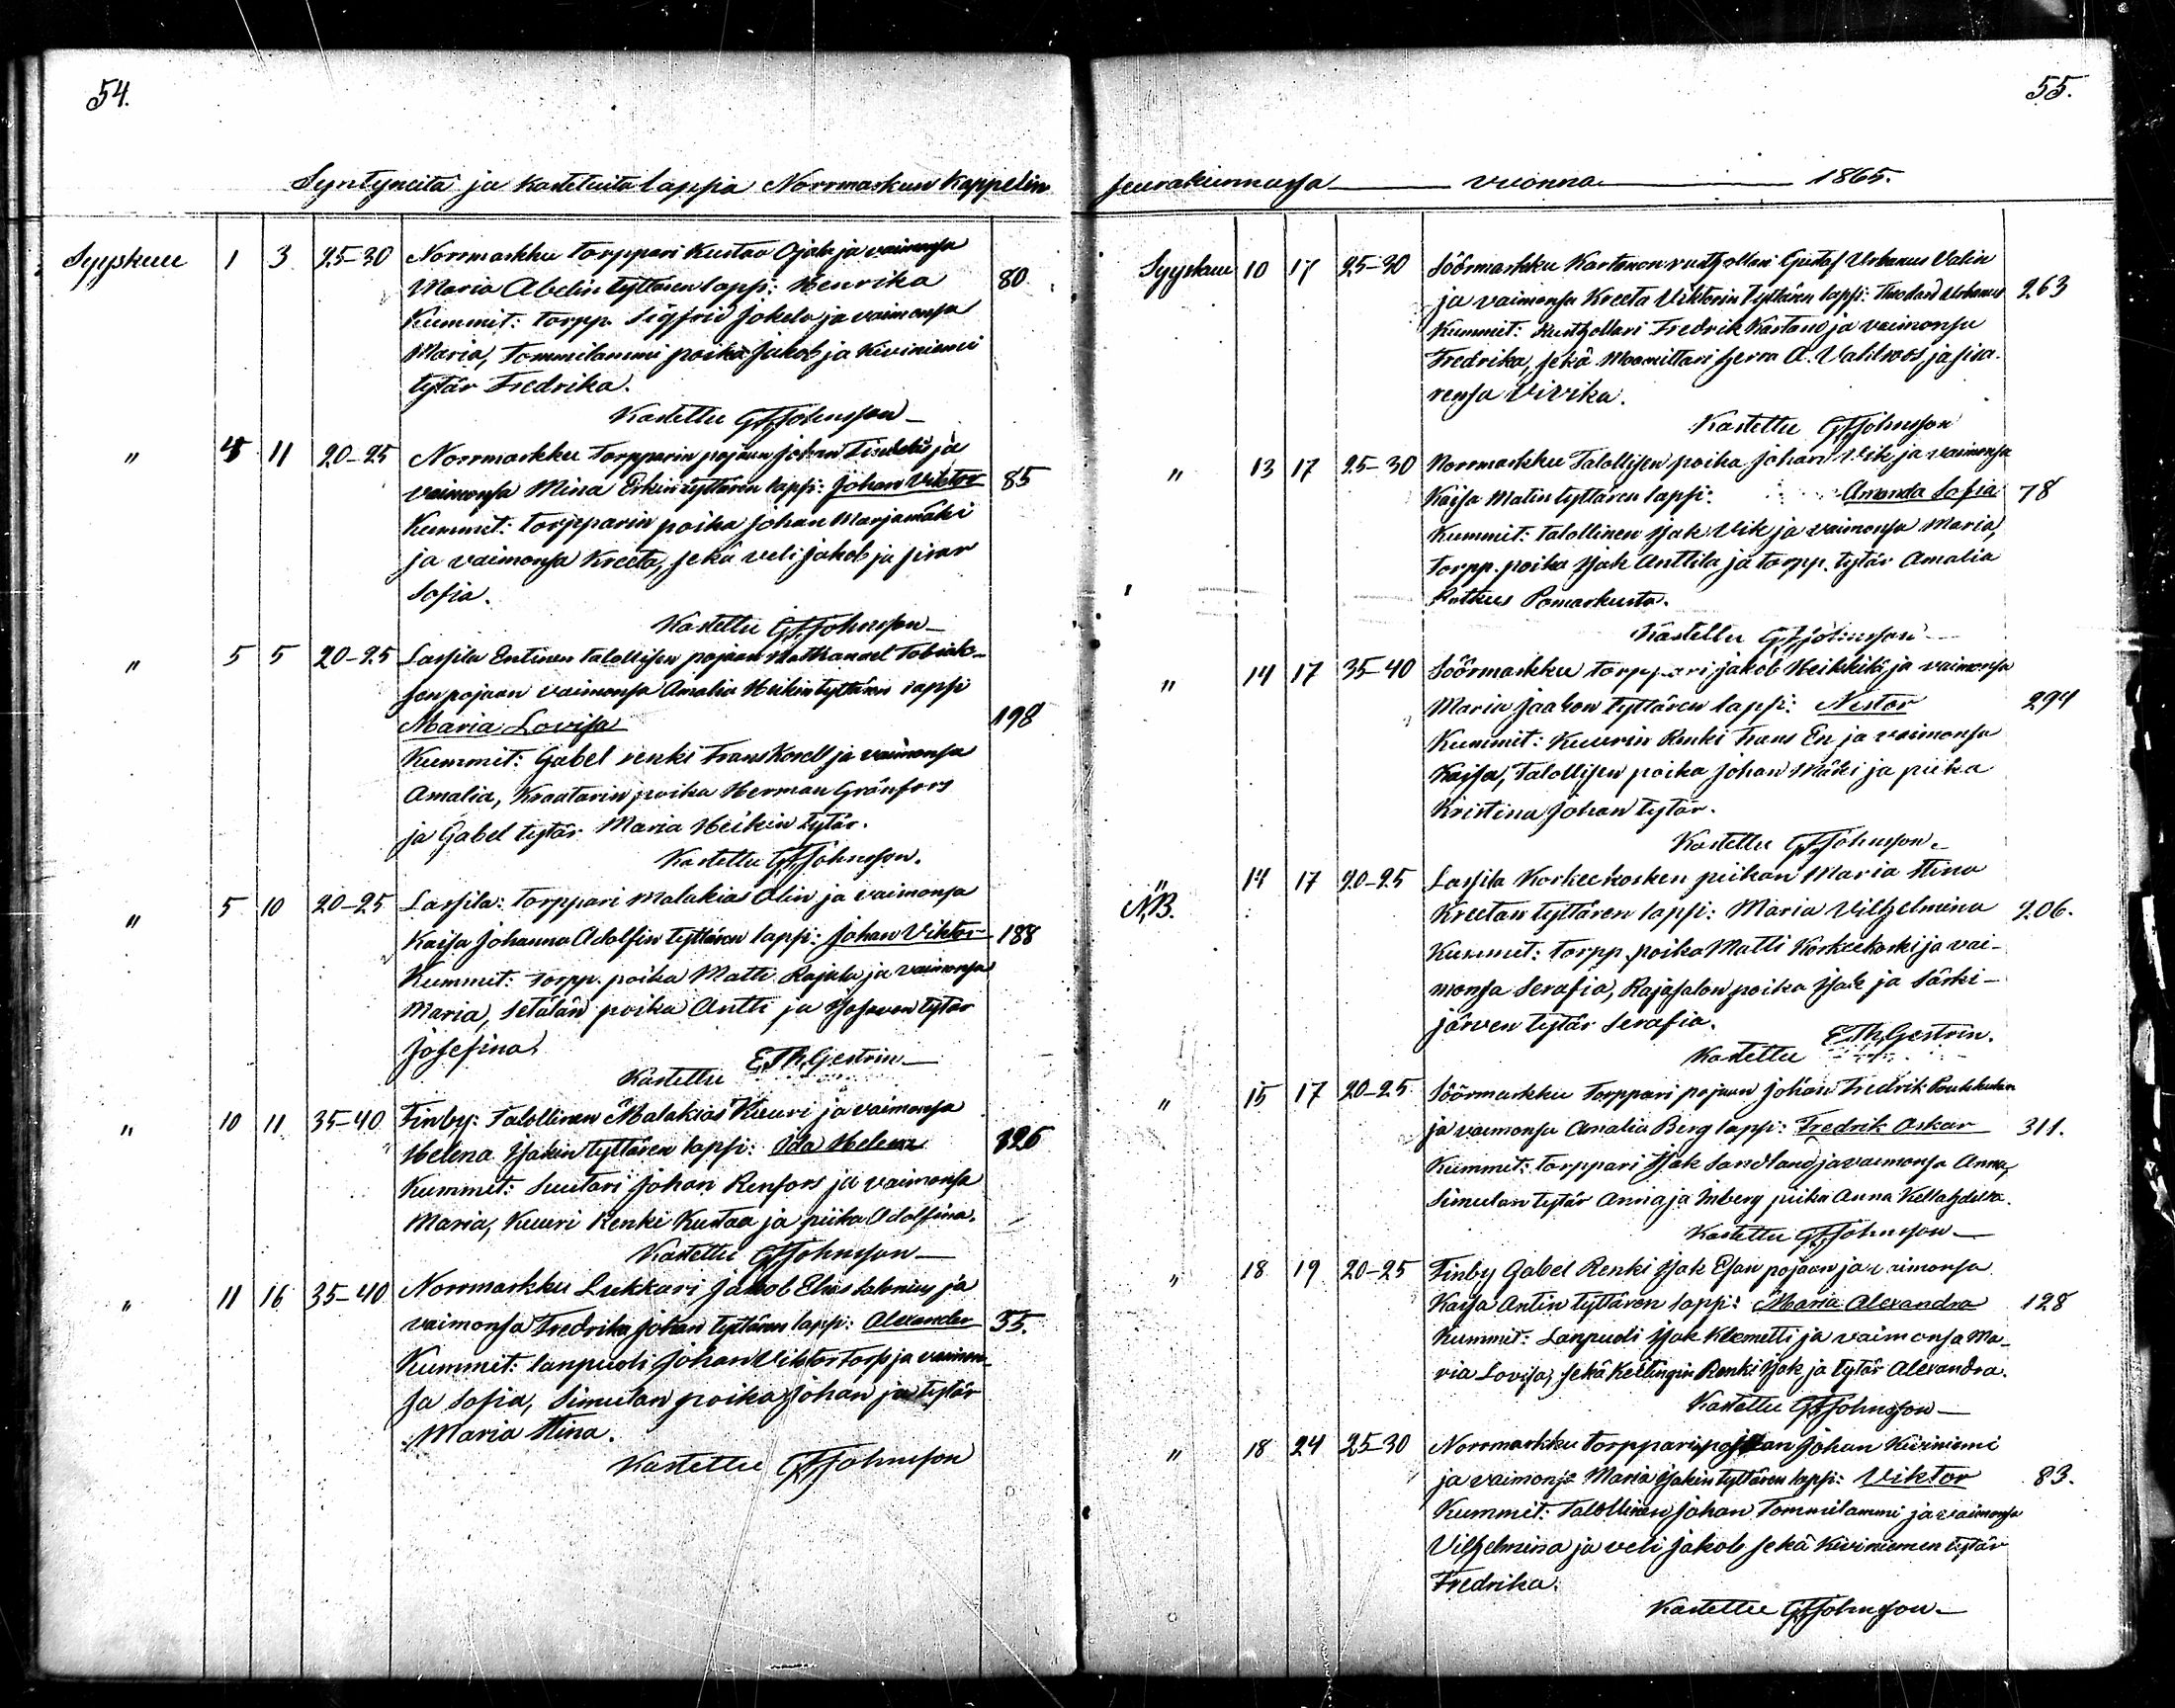 54.
Syntyneitä ja kastetuita lapsia Norrmarkun Kappelin
Syyskuu 1 3 25-30 Norrmarkku torppari Kustaa Ojala ja vaimonsa
Maria Abelin tyttären lapsi: Henrika 80.
Kummit: torpp. Sigfrid Jokela ja vaimonsa
Maria, Tommilammi poika Jakob ja Kiviniemi
tytär Fredrika.
Kastettu GFJohnsson
" 4 11 20-25 Norrmarkku Torpparin pojan Johan ja
vaimonsa Mina Erkin tyttären lapsi: Johan Viktor 85
Kummit: torpparin poika Johan Marjamäki
ja vaimonsa Kreeta, sekä veli Jakob ja sisar
Sofia.
Kastettu GFJohnsson
" 5 5 20-25 Lassila Entinen talollisen pojan Nathanael Tobiak-
sen pojan vaimonsa Amalia Heikin tyttären lapsi
Maria Lovisa 198
Kummit: Gabel renki Frans Korell ja vaimonsa
Amalia, Kraatarin poika Herman Gränfors
ja Gabel tytär Maria Heikin tytär.
Kastettu GFJohnsson.
" 5 10 20-25 Lassila: torppari Malakias Olin ja vaimonsa
Kaisa Johanna Adolfin tyttären lapsi: Johan Viktor 188
Kummit: torpp. poika Matti Rajala ja vaimonsa
Maria, Setälän poika Antti ja tytär
Josefina.
Kastettu E.Th.Gestrin
" 10 11 35-40 Finby: Talollinen Malakias Kuuri ja vaimonsa
Helena Isakin tyttären lapsi: Ida Helena 126
Kummit: Suutari Johan Renfors ja vaimonsa
Maria, Kuuri Renki Kustaa ja piika Adolfina.
Kastettu GFJohnsson
" 11 16 35-40 Norrmarkku Lukkari Jakob Elias Salenius ja
vaimonsa Fredrika Johan tyttären lapsi: Alexander 35.
Kummit: lanpuoli Johan Viktor Torp ja vaimon-
sa Sofia, Simulan poika Johan ja tytär
Maria Stina.
Kastettu GFJohnsson
55.
seurakunnassa vuonna 1865.
Syyskuu 10 17 25-30 Söörmarkku Kartanon rusthollari Gustaf Urbanus Valin
ja vaimonsa Kreeta Viktorin tyttären lapsi: Theodard Urbanus 263
Kummit: Rusthollari Fredrik Kartano ja vaimonsa
Fredrika, sekä Maamittari herra A. Vahlroos ja sisa-
rensa Vivika.
Kastettu GFJohnsson
" 13 17 25-30 Norrmarkku Talollisen poika Johan Vik ja vaimonsa
Kaisa Matin tyttären lapsi: Amanda Sofia 78
Kummit: talollinen Isak Vik ja vaimonsa Maria,
torpp. poika Isak Anttila ja torpp. tytär Amalia
Ruthus Pomarkusta.
Kastettu GFJohnsson
" 14 17 35-40 Söörmarkku torppari Jakob Heikkilä ja vaimonsa
Maria Jaakon tyttären lapsi: Nestor 294
Kummit: Kuurin Renki Frans En ja vaimonsa
Kajsa, Talollisen poika Johan Mäki ja piika
Kristina Johan tytär.
Kastettu GFJohnsson.
" 14 17 20-25 Lassila Korkeekosken piikan Maria Stina
N.B. Kreetan tyttären lapsi: Maria Vilhelmina 206.
Kummit: torpp. poika Matti Korkeekoski ja vai-
monsa Serafia, Rajasalon poika Isak ja Särki-
järven tytär Serafia.
Kastettu E.Th.Gestrin.
" 15 17 20-25 Söörmarkku Torppari pojan Johan Fredrik
ja vaimonsa Amalia Berg lapsi: Fredrik Oskar 311.
Kummit: torppari Isak Sandland ja vaimonsa Anna,
Simulan tytär Anna ja Inberg piika Anna
Kastettu GFJohnsson
" 18 19 20-25 Finby Gabel Renki Isak Esan pojan ja vaimonsa
Kaisa Antin tyttären lapsi: Maria Alexandra 128
Kummit: Lanpuoli Isak Klemetti ja vaimonsa Ma-
ria Lovisa, sekä Kellingin Renki Isak ja tytär Alexandra.
Kastettu GFJohnsson
" 18 24 25-30 Norrmarkku torppari pojan Johan Kiviniemi
ja vaimonsa Maria Isakin tyttären lapsi: Viktor 83.
Kummit: Talollinen Johan Tommilammi ja vaimonsa
Vilhelmina ja veli Jakob sekä Kiviniemen tytär
Fredrika.
Kastettu GFJohnsson